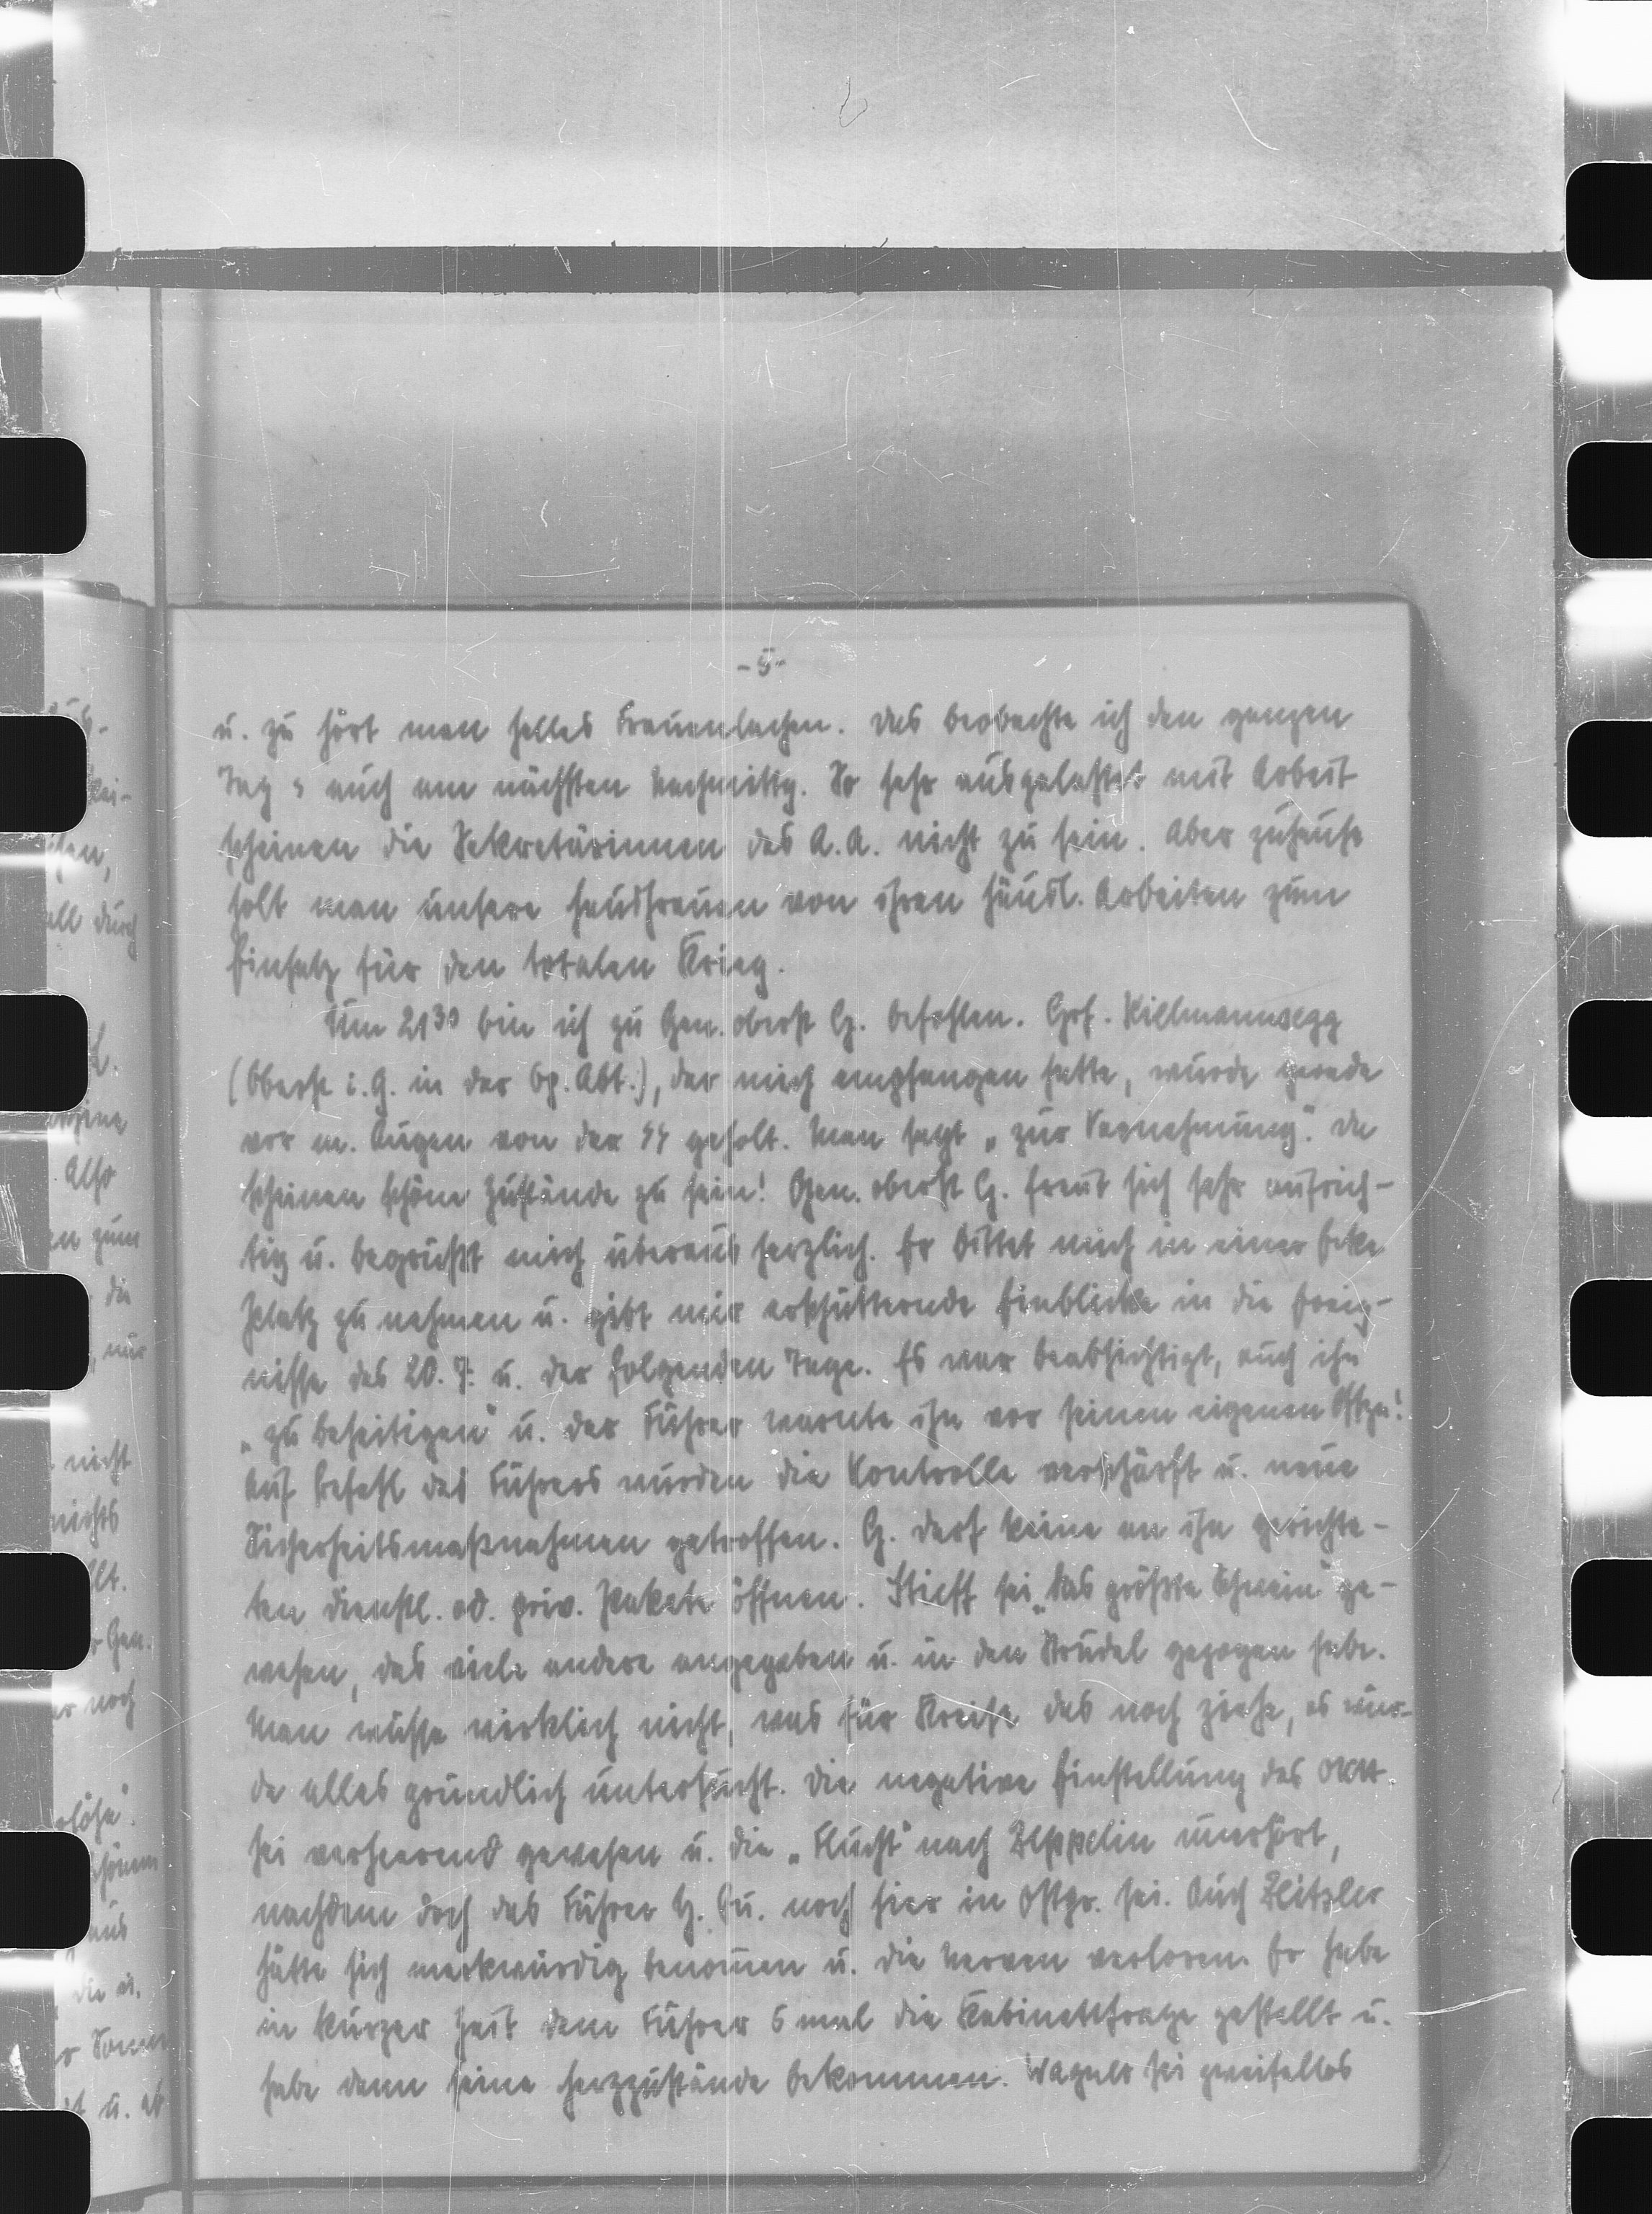 - 5 -
u. zu hört man helles Frauenlachen. Das beobachte ich den ganzen
Tag u. auch am nächsten Nachmittg. So sehr ausgelastet mit Arbeit
scheinen die Sekretärinnen des A.A. nicht zu sein. Aber zuhause
holt man unsere Hausfrauen von ihren häusl. Arbeiten zum
Einsatz für den totalen Krieg.
Um 21³⁰ bin ich zu Gen. oberst G. befohlen. Grf. Kielmannsegg
(Oberst i. G. in der Op. Abt.), der mich empfangen hatte, wurde gerade
vor m. Augen von der SS geholt. Man sagt „zur Vernehmung“. Da
scheinen schöne Zustände zu sein! Gen. oberst G. freut sich sehr aufrich-
tig u. begrüßt mich überaus herzlich. Er bittet mich in einer Ecke
Platz zu nehmen u. gibt mir erschütternde Einblicke in die Ereig-
nisse des 20. 7. u. der folgenden Tage. Es war beabsichtigt, auch ihn
„zu beseitigen“ u. der Führer warnte ihn vor seinen eigenen Offzn!
Auf Befehl des Führers wurden die Kontrolle verschärft u. neue
Sicherheitsmaßnahmen getroffen. G. darf keine an ihn gerichte-
ten dienstl. od. priv. Pakete öffnen. Stieff sei „das größte Schwein“ ge-
wesen, das viele andere angegeben u. in den Strudel gezogen habe.
Man wüsste wirklich nicht, was für Kreise das noch ziehe, es wür-
de alles gründlich untersucht. Die negative Einstellung des OKH.
sei verheerend gewesen u. die „Flucht“ nach Zeppelin unerhört,
nachdem doch das Führer H. Qu. noch hier in Ostpr. sei. Auch Zeitzler
hätte sich merkwürdig benom̄en u. die Nerven verloren. Er habe
in kurzer Zeit dem Führer 5 mal die Kabinettsfrage gestellt u.
habe dann seine Herzzustände bekommen. Wagner sei zweifellos